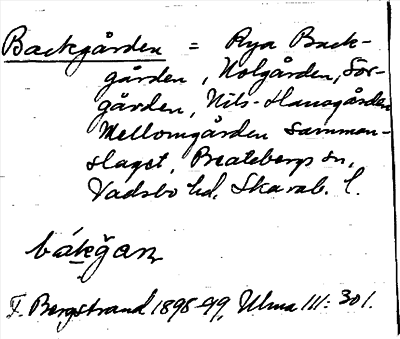 Backgården = Rya Back-
gården, Holgården, Sör-
gården, Nils-Hansgården
Mellomgården samman-
slaget, Breatebergs sn,
Vadsbo hd, Skarab. l.
F. Bergstrand 1898-99, Ulma III: 301.